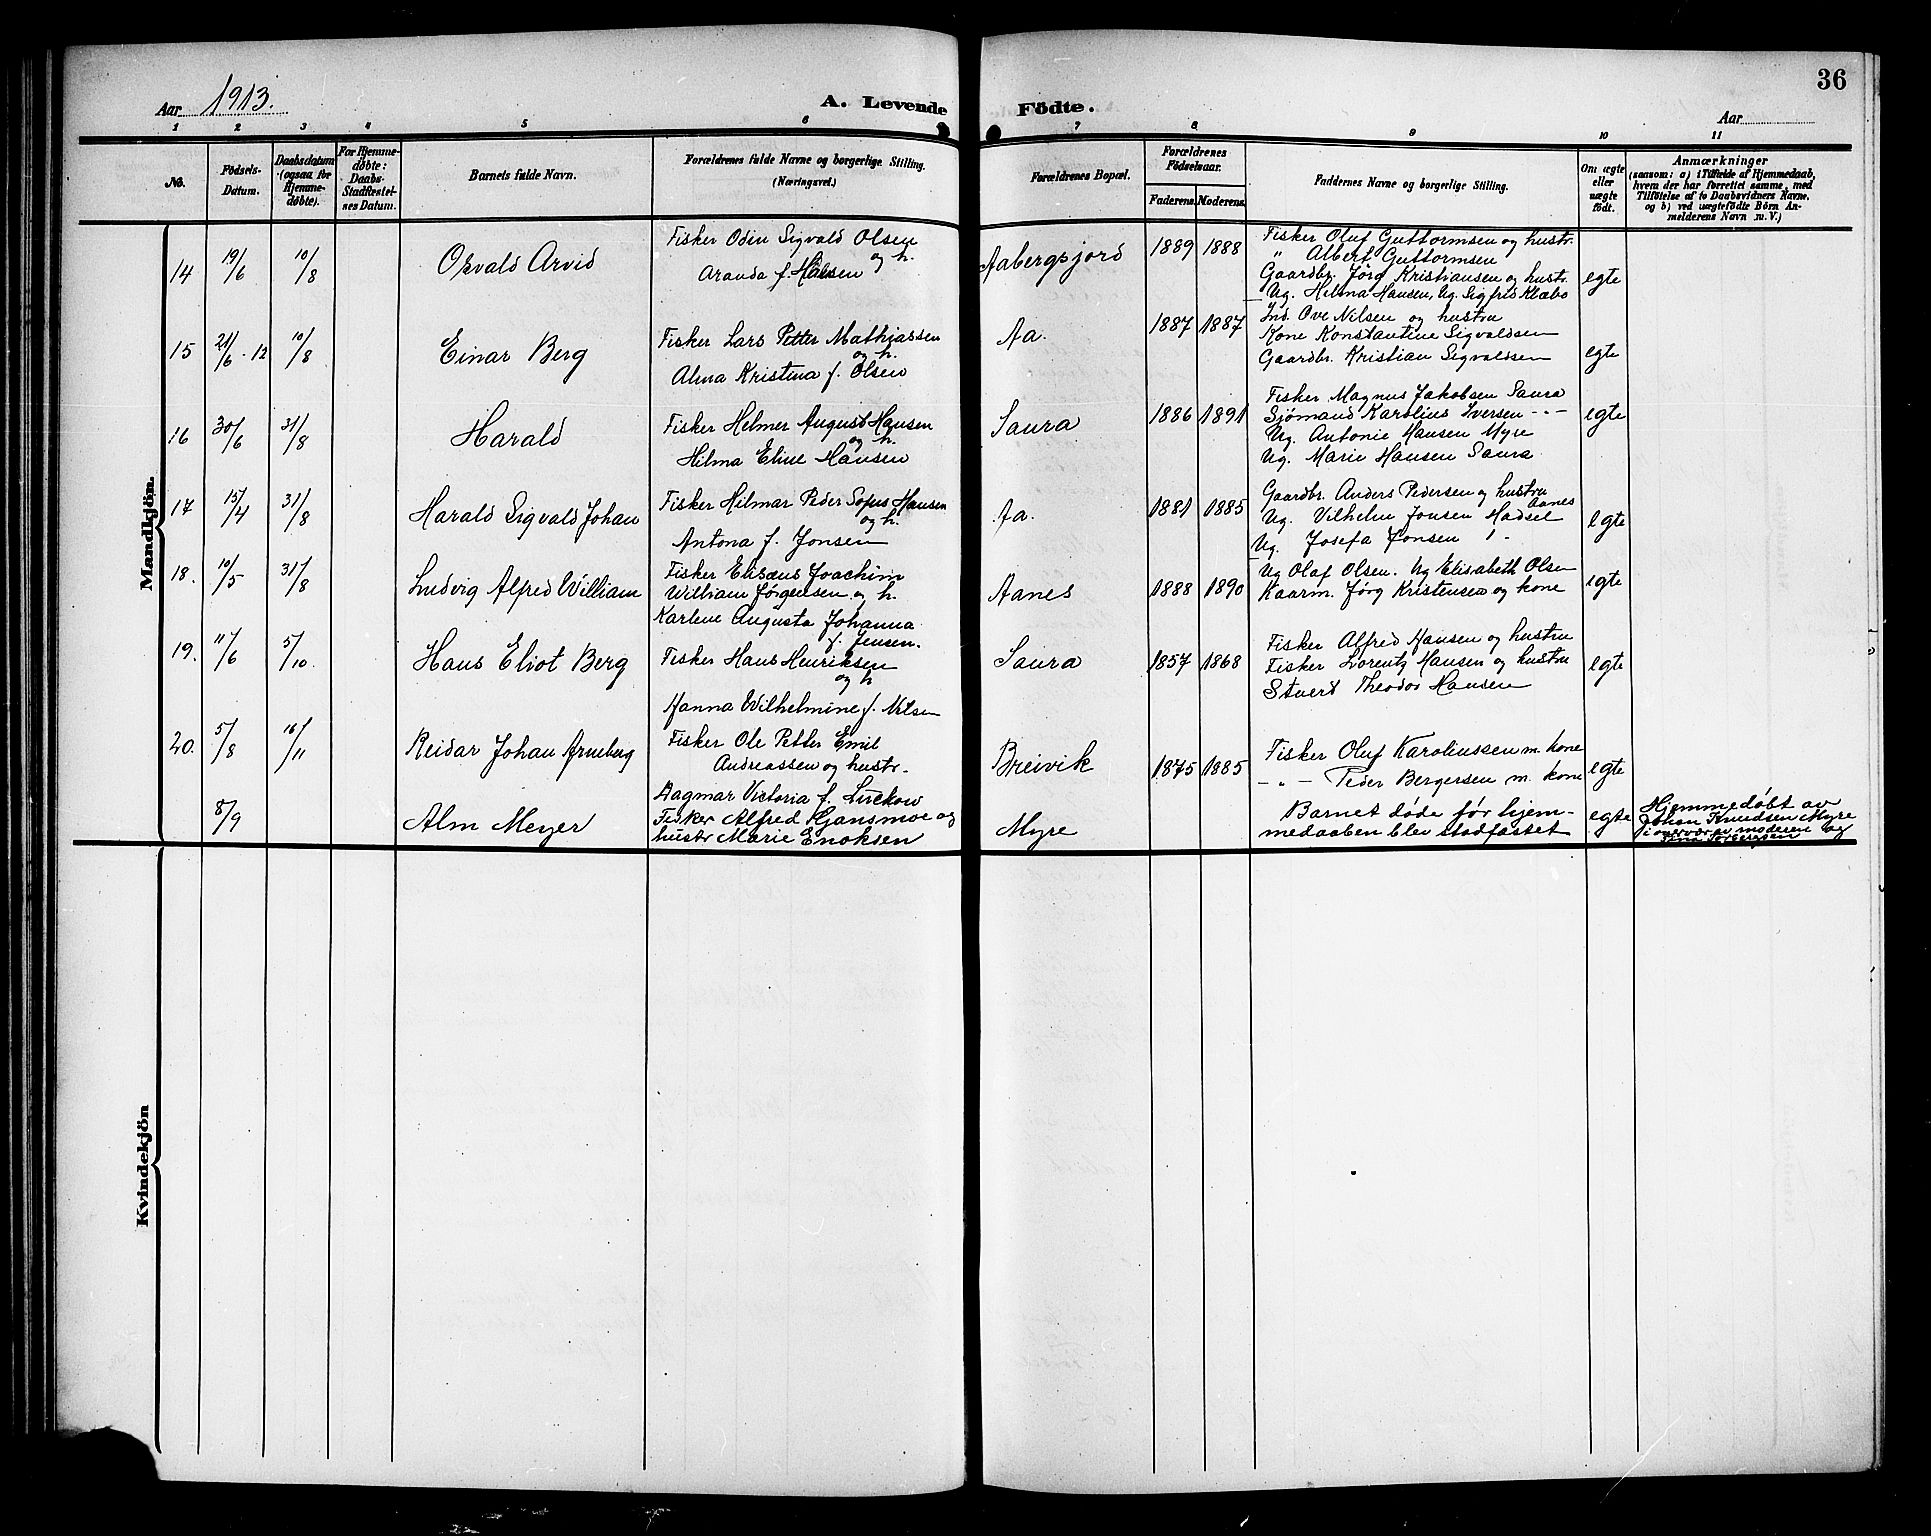 Aar 1913.
A. Levende Födte.
36
Aar
1 2 3 4 5 6 7 8 9 10 11
No.
Födsels-Datum.
Daabsdatum (ogsaa for Hjemme-døbte).
For Hjemme-døbte: Daabs-Stadfæstel-ses Datum.
Barnets fulde Navn.
Forældrenes fulde Navne og borgerlige Stilling.
(Næringsvei.)
Forældrenes Bopæl.
Forældrenes Födselsaar.
Faderens. Moderens.
Faddernes Navne og borgerlige Stilling.
Om ægte eller uægte födt.
Anmærkninger
(saasom: a) i Tilfælde af Hjemmedaab,
hvem der har forrettet samme, med
Tilföielse af to Daabsvidners Navne,
og b) ved uægtefødte Börn An-
melderens Navn m. V.)
Mandkjön.
14 19/6 10/8 Osvald Arvid
Fisker Odin Sigvald Olsen
og h.
Aranda f. Hansen
Aabergsjord 1889 1888
Fisker Oluf Guttormsen og hustr.
" Albert Guttormsen
Gaardbr. Jörg Kristiansen og hustr.
Ug. Helma Hansen, Ug. Sigfrid Klæbo
egte
15 21/6 . 12 10/8 Einar Berg
Fisker Lars Petter Mathiassen
og h.
Alma Kristina f. Olsen
Aa. 1887 1887
Ind. Ove Nilsen og hustru
Kone Konstantine Sigvaldsen
Gaardbr. Kristian Sigvaldsen
egte
16 30/6 31/8 Harald
Fisker Helmer August Hansen
og h.
Hilma Eline Hansen
Saura 1886 1891
Fisker Magnus Jakobsen Saura
Sjömand Karolius Iversen -"-
Ug. Antonie Hansen Myre
Ug. Marie Hansen Saura
egte
17 15/4 31/8 Harald Sigvald Johan
Fisker Hilmar Peder Sofus Hansen
og h.
Antona f. Jonsen
Aa. 1881 1885
Gaardbr. Anders Pedersen og hustru
Aanes
Ug. Vilhelm Jonsen Hadsel
Ug. Josefa Jonsen
egte
18. 10/5 31/8 Ludvig Alfred William
Fisker Elisæus Joachim
William Jörgensen og h.
Karlene Augusta Johanna
f. Jensen.
Aanes 1888 1890
Ug Olaf Olsen. Ug Elisabeth Olsen
Kaarm. Jörg Kristensen og kone
egte
19. 11/6 5/10. Hans Eliot Berg
Fisker Hans Henriksen
og h
Hanna Wilhelmine f. Nilsen
Saura 1857 1868
Fisker Alfred Hansen og hustru
Fisker Lorentz Hansen og hustru
Stuert Theodor Hansen
egte
20. 5/8 16/11 Reidar Johan Arneberg
Fisker Ole Petter Emil
Andreassen og hustr.
Dagmar Victoria f. Lückow
Breivik 1875 1885
Fisker Oluf Karoliussen m. kone
-"- Peder Bergersen m. kone
egte
8/9 Alm Meyer
Fisker Alfred Gjansmoe og
hustr Marie Enoksen
Myre
Barnet döde för hjem-
medaaben blev stadfæstet
egte
Hjemmedöbt av
Johan Knudsen Myre
i overvær av moderen og
Kvindekjön